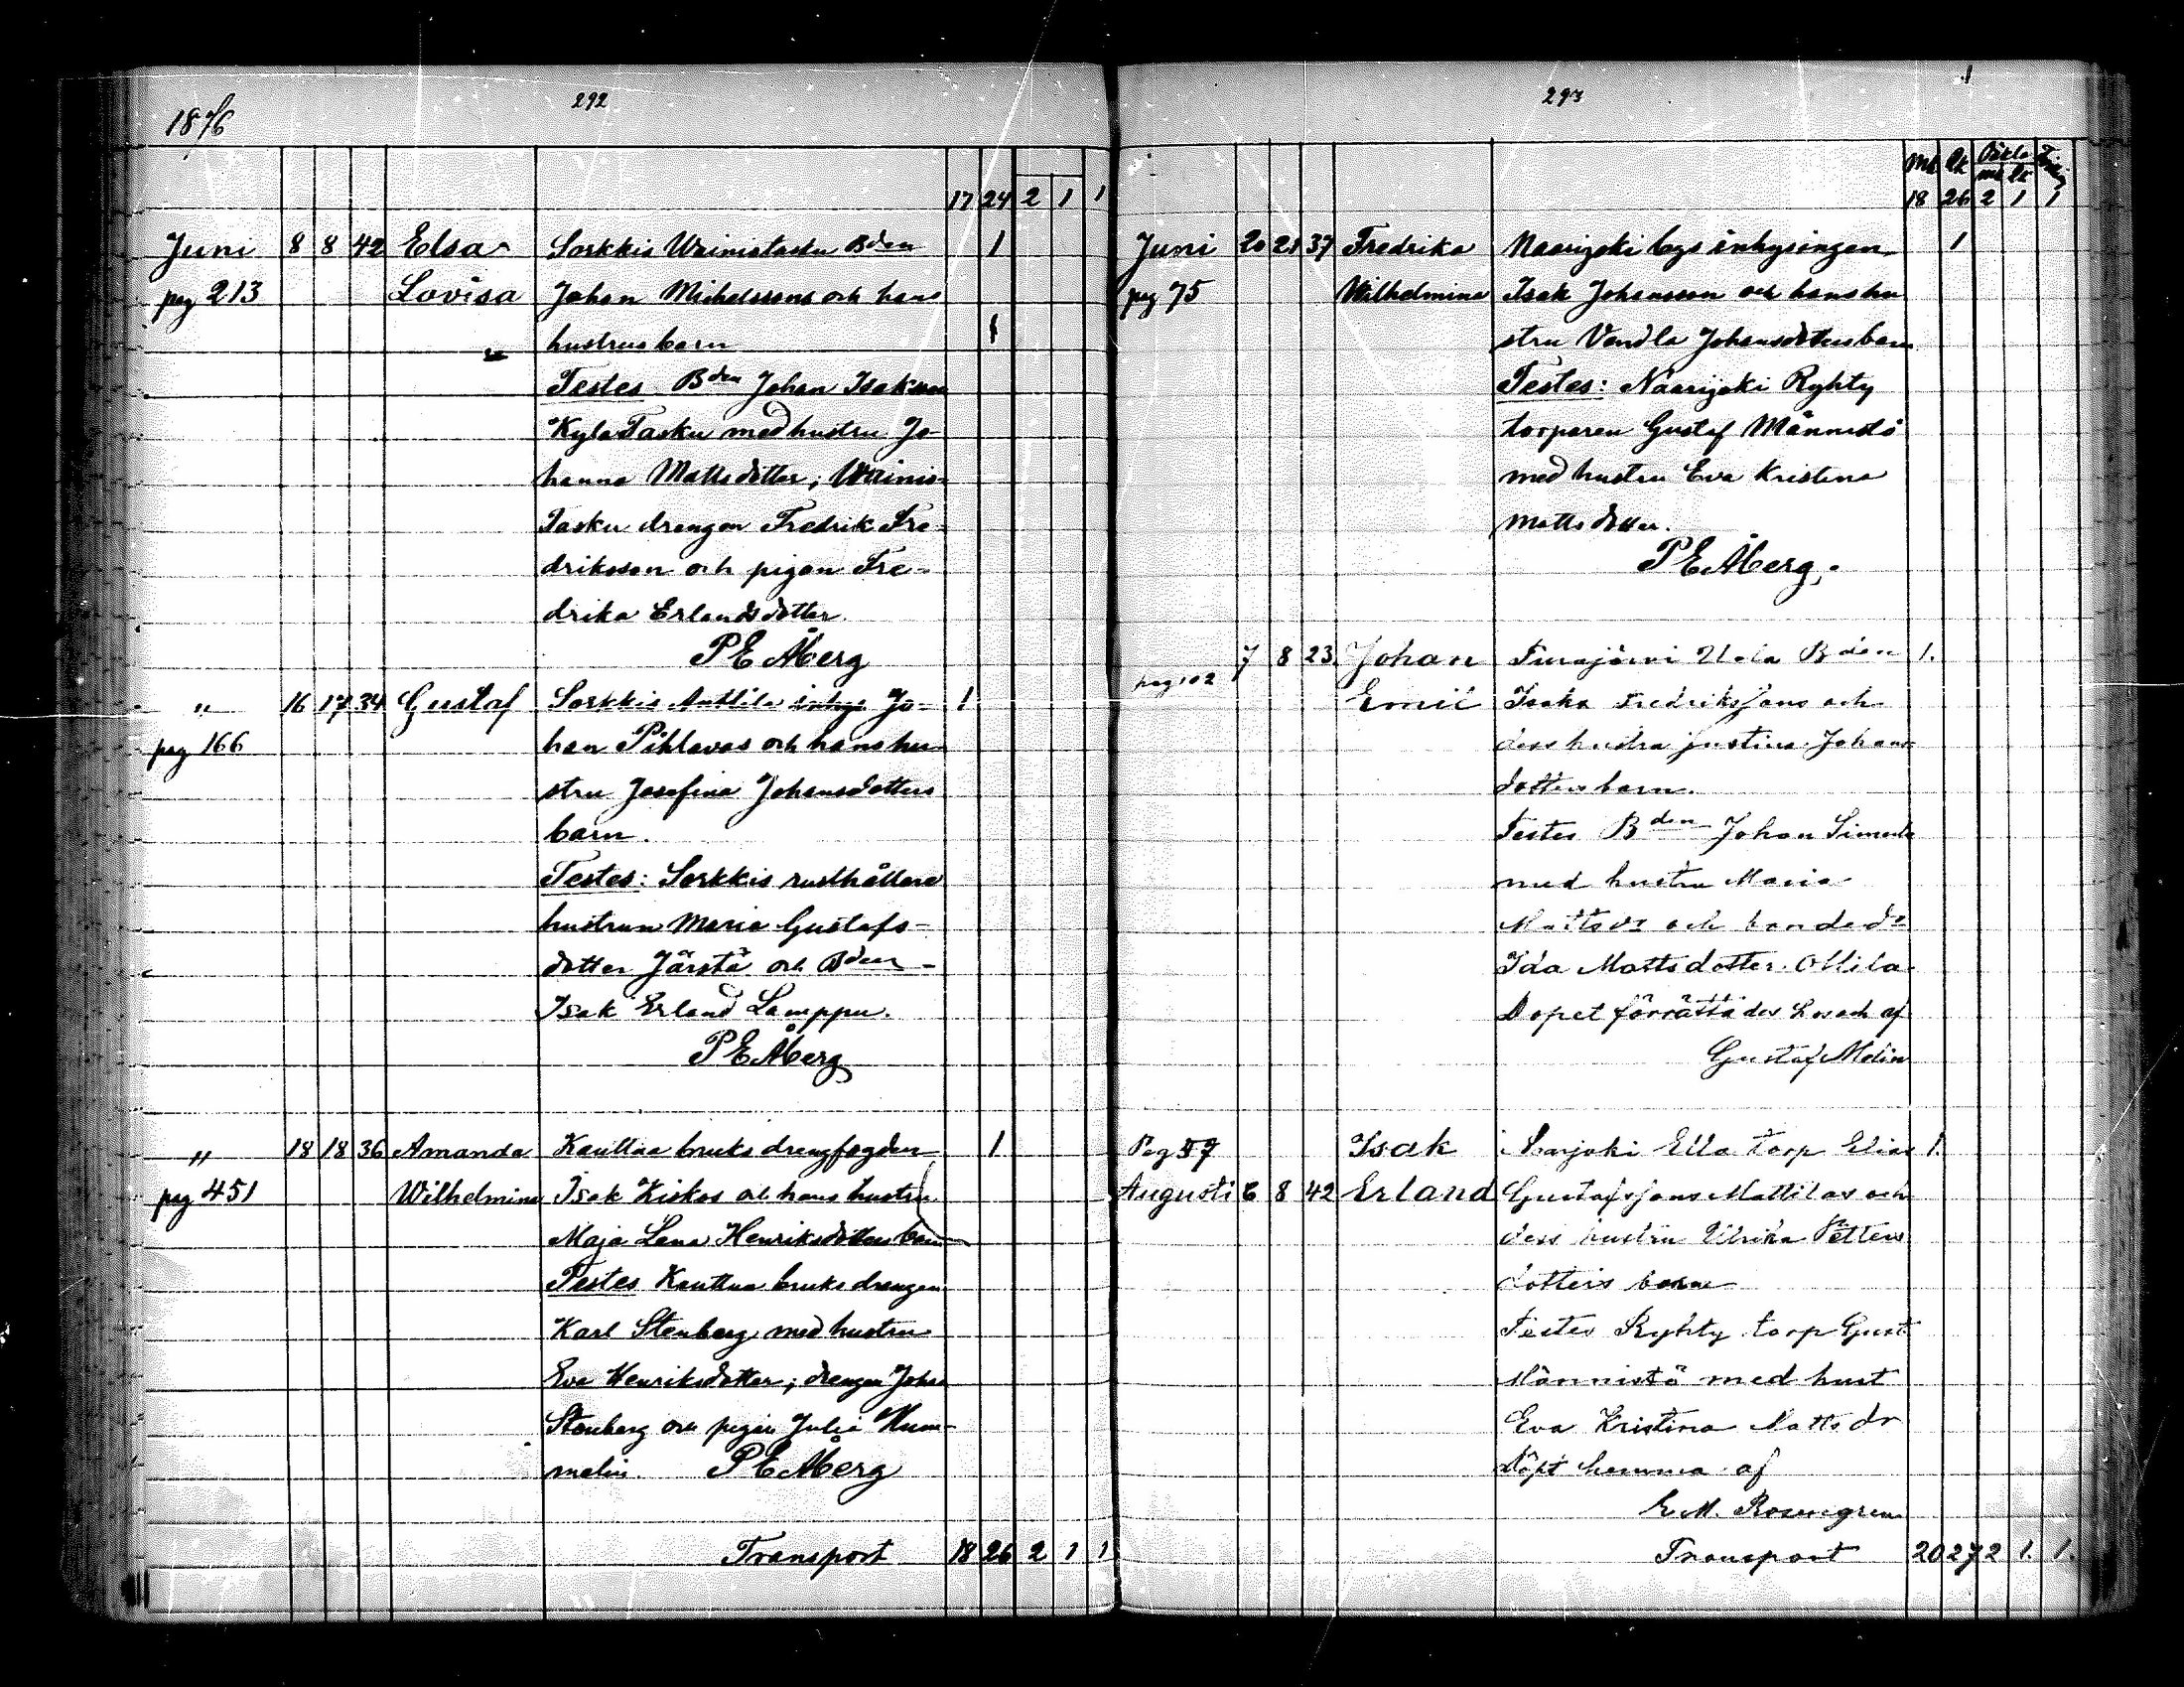 1876
292
17 24 2 1 1
Juni 8 8 42 Elsa Sorkkis Wainiotasku Bden 1
pag 213 Lovisa Johan Michelssons och hans
hustrus barn 1
Testes Bden Johan Isaksson
Kylä Tasku med hustru Jo-
hanna Matts dotter; Wainio-
Tasku drengen Fredrik Fre-
driksson och pigan Fre-
drika Erlandsdotter.
P E Åberg
" 16 17 34 Gustaf Sorkkis Anttila inhys Jo- 1
pag 166 han Pihlavas och hans hu-
stru Josefina Johansdotters
barn.
Testes: Sorkkis rusthållare
hustrun Maria Gustafs-
dotter Järstä och Bden
Isak Erland Lamppu.
P E Åberg
" 18 18 36 Amanda Kauttua bruks drengfogden 1
pag 451 Wilhelmina Isak Kiskos och hans hustru
Maja Lena Henriksdotters barn
Testes Kauttua bruks drengen
Karl Stenberg med hustru
Eva Henriksdotter; drengen Johan
Stenberg och pigan Julia Hum-
melin. P E Åberg
Transport 18 26 2 1 1
293
Mk Qk Oäkta
mk Qk
18 26 2 1 1
Juni 20 21 37 Fredrika Naarijoki bys inhysingen 1
pag 75 Wilhelmina Isak Johansson och hans hu
stru Vendla Johansdotters barn
Testes: Naarijoki Ryhty
torparen Gustaf Männistö
med hustru Eva Kristina
Matts dotter.
P E Åberg.
7 8 23 Johan Turajärvi Uola Bden 1.
pag 102 Emil Isaks Fredrikssons och
dess hustru Justina Johans
dotters barn.
Testes Bden Johan Simula
med hustru Maria
Mattsdr och bonded=
Ida Mattsdotter Ollila
Dopet förrättades af
Gustaf Melin
Pag 57 Isak Naarjoki Ella torp Elias 1.
Augusti 6 8 42 Erland Gustafssons Mattilas och
dess hustru Ulrika Petters
dotters barn
Testes Ryhty torp Gust
Männistö med hust
Eva Kristina Matts dr
döpt hemma af
E M. Rosengren
Transport 20 27 2 1. 1.